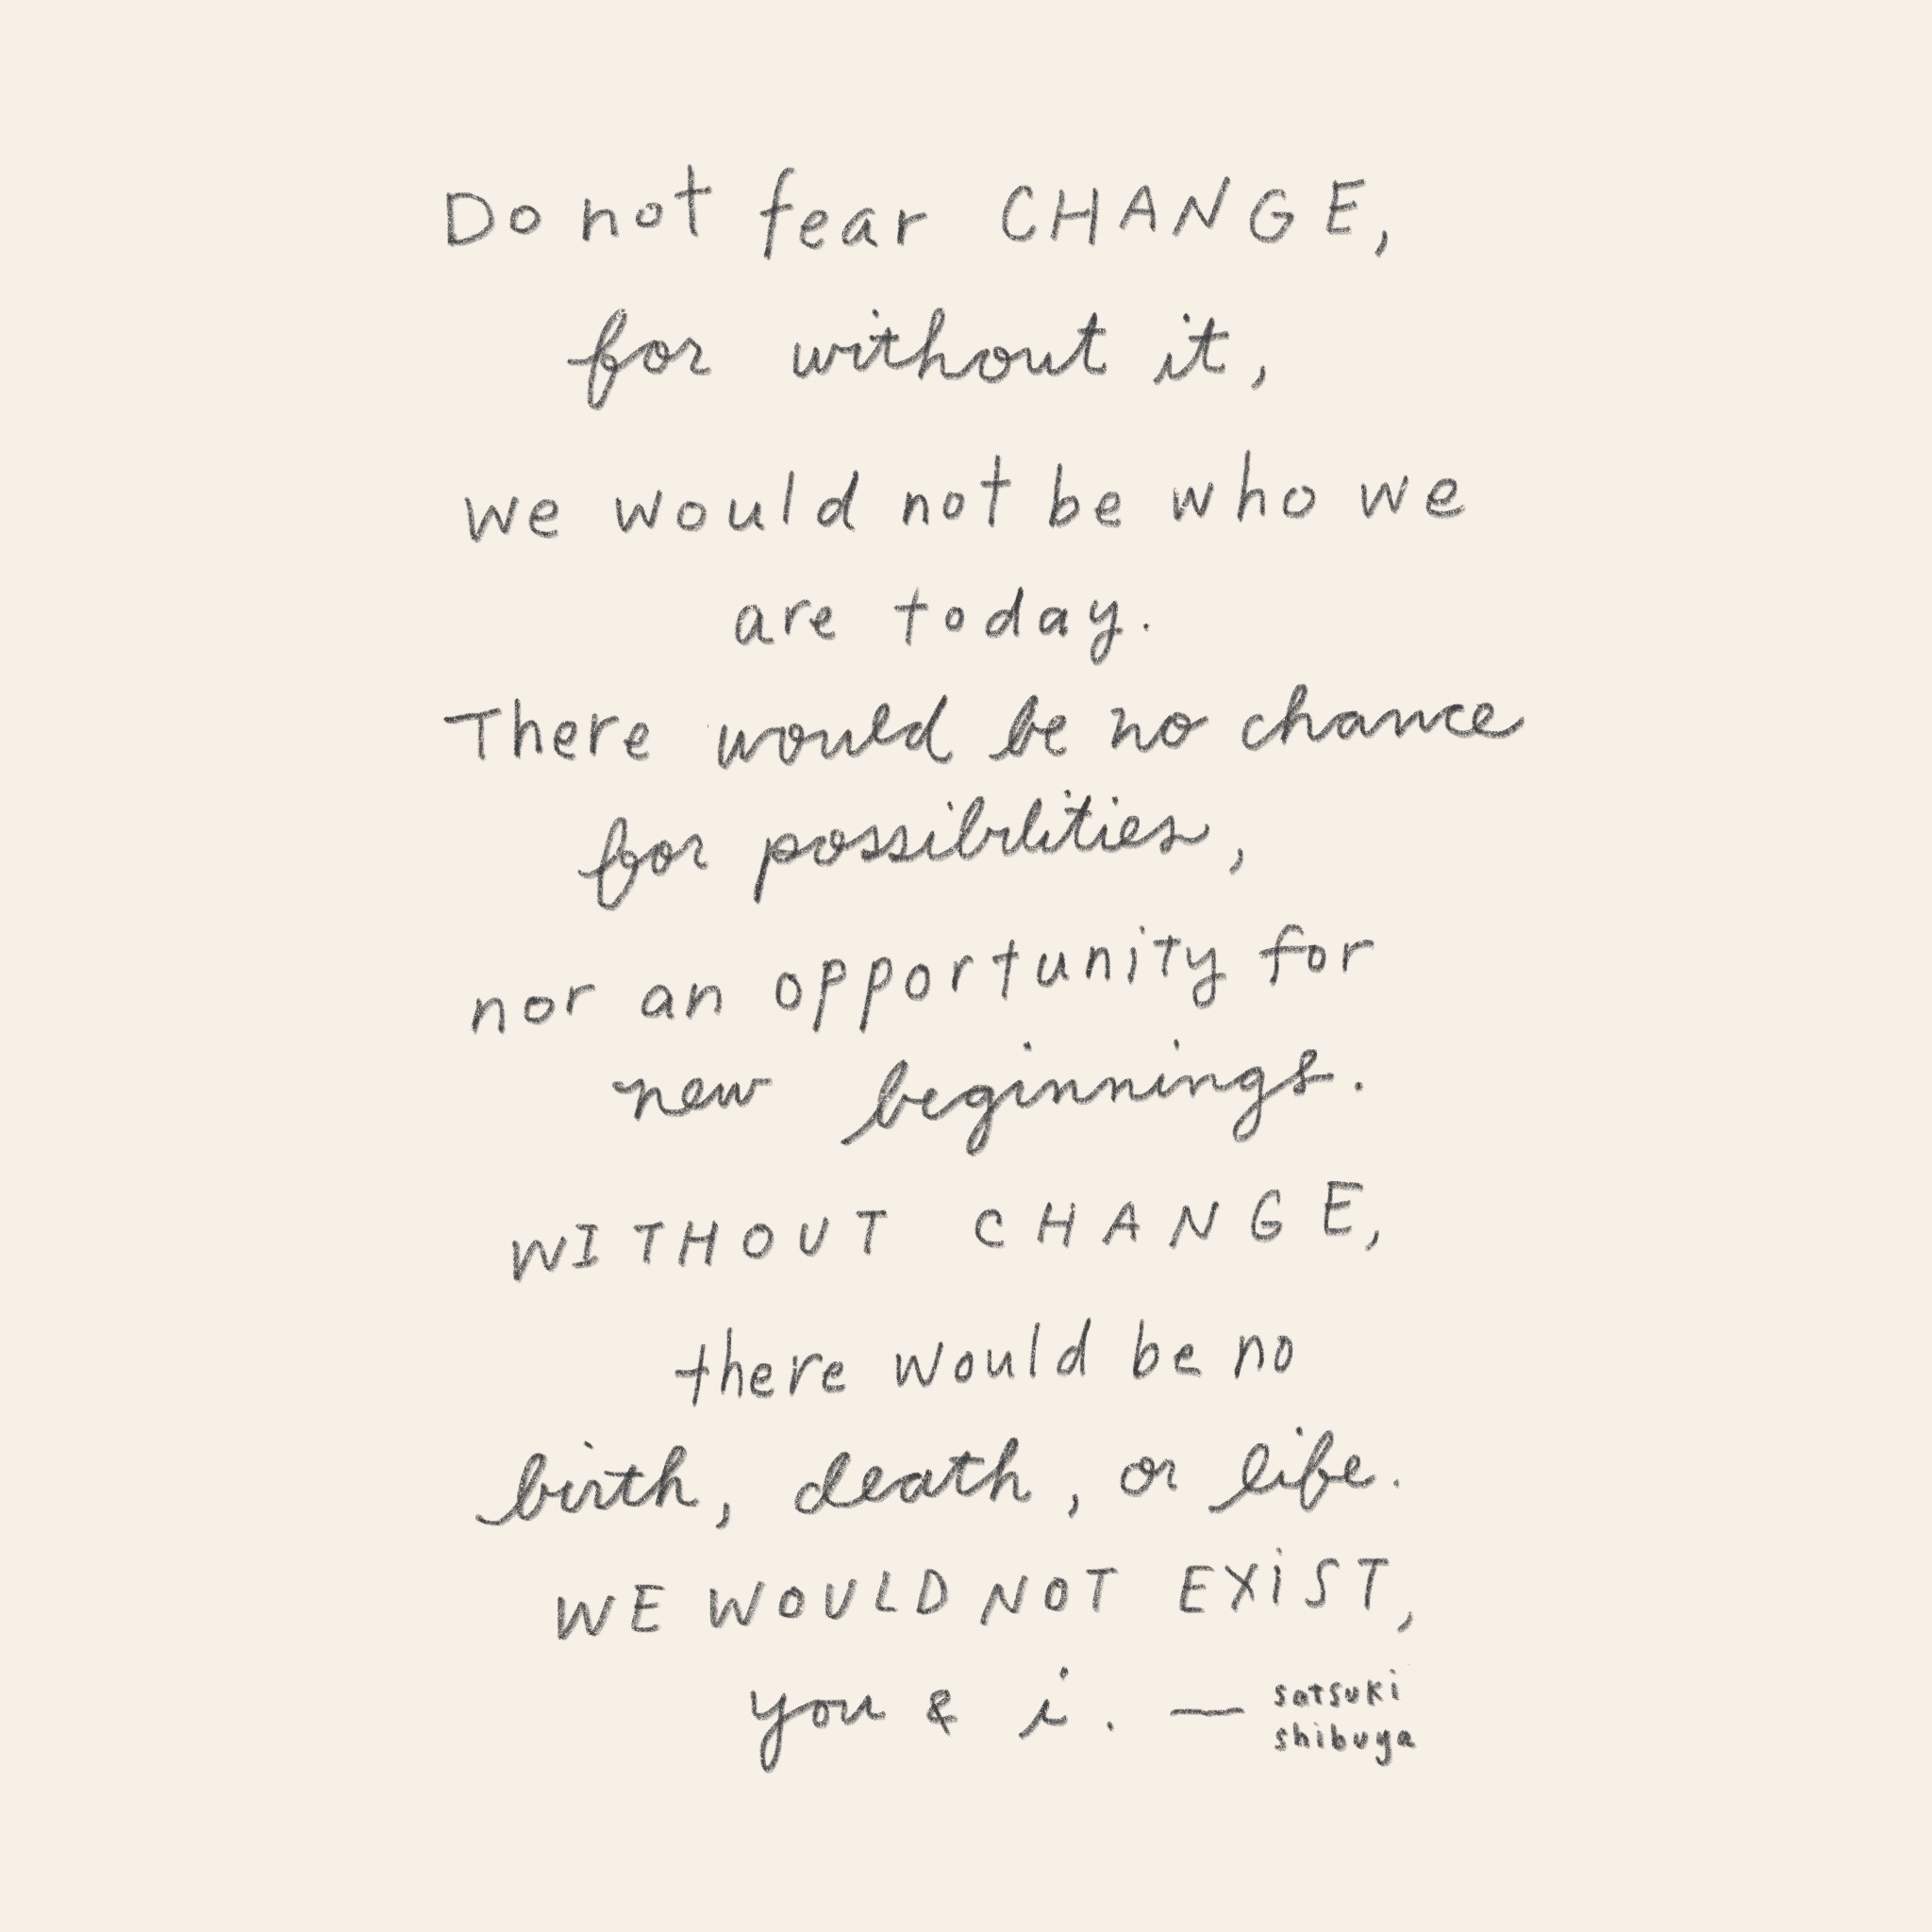 Do not fear CHANGE,
for without it,
we would not be who we
are today.
There would be no chance
for possibilities,
nor an opportunity for
new beginnings.
WITHOUT CHANGE,
there would be no
birth, death, or life.
WE WOULD NOT EXiST,
you & i. — satsuki
shibuya